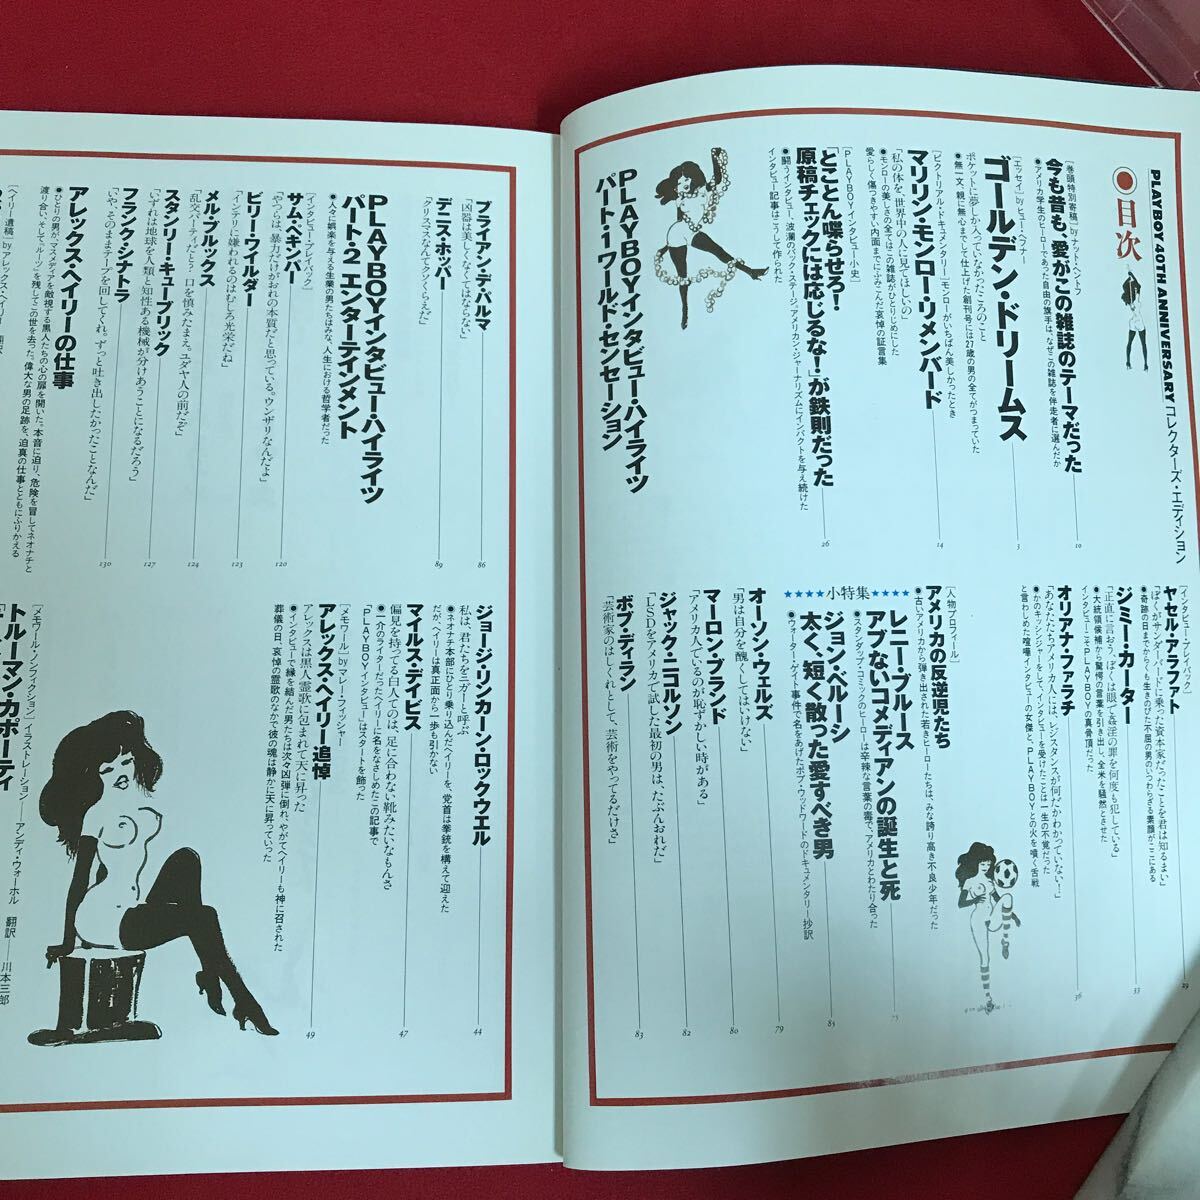 PLAYBOY 40TH ANNIVERSARY コレクターズ・エディション
目次
[巻頭特別寄稿] by ナット・ヘントフ
今も昔も、愛がこの雑誌のテーマだった
10
●アメリカ学生のヒーローであった自由の旗手は、なぜこの雑誌を伴走者に選んだか
[エッセイ] by ヒュー・ヘフナー
ゴールデン・ドリームス
3
ポケットに夢しか入っていなかったころのこと
●無一文、親に無心までして仕上げた創刊号には27歳の男の全てがつまっていた
[ピクトリアル・ドキュメンタリー] モンローがいちばん美しかったとき
マリリン・モンロー・リメンバード
14
「私の体を、世界中の人に見てほしいの」
●モンローの美しさの全ては誌がひとりじめにした
愛らしく傷つきやすい内面までにふみこんだ哀悼の証言集
[PLAYBOYインタビュー小史]
「とことん喋らせろ!
原稿チェックには応じるな!」が鉄則だった
26
●闘うインタビュー、波瀾のバック・ステージ。アメリカン・ジャーナリズムにインパクトを与え続けた
インタビュー記事はこうして作られた
PLAYBOYインタビュー・ハイライツ
パート・1 ワールド・センセーション
[インタビュー・プレイバック]
ヤセル・アラファト
29
「ぼくがサンダーバードに乗った資本家だったことを君は知るまい」
●奇跡の日までからくも生きのびた不屈の男のいつわらざる素顔がここにある
ジミー・カーター
33
「正直に言おう。ぼくは眼で姦淫の罪を何度も犯している」
●大統領候補から驚愕の言葉を引き出し、全米を騒然とさせた
インタビューこそPLAYBOYの真骨頂だった
オリアナ・ファラチ
36
「あなたたちアメリカ人には、レジスタンスが何だかわかっていない!」
●かのキッシンジャーをして、インタビューを受けたことは一生の不覚だった
と言わしめた喧嘩インタビューの女傑と、PLAYBOYとの火を噴く舌戦
[人物プロフィール]
アメリカの反逆児たち
●古いアメリカから弾き出された若きヒーローたちは、みな誇り高き不良少年だった
レニー・ブルース
アブないコメディアンの誕生と死
75
●スタンダップ・コミックのヒーローは辛辣な言葉の毒で、アメリカとわたり合った
★★★★小特集★★★★
ジョン・ベルーシ
太く、短く散った愛すべき男
85
●ウォーターゲイト事件で名をあげたボブ・ウッドワードのドキュメンタリー抄訳
オーソン・ウェルズ
79
「男は自分を醜くしてはいけない」
マーロン・ブランド
80
「アメリカ人でいるのが恥ずかしい時がある」
ジャック・ニコルソン
82
「LSDをアメリカで試した最初の男は、たぶんおれだ」
ボブ・ディラン
83
「芸術家のはしくれとして、芸術をやってるだけさ」
ブライアン・デ・パルマ
86
「凶器は美しくなくてはならない」
デニス・ホッパー
89
「クリスマスなんてクソくらえだ」
PLAYBOYインタビュー・ハイライツ
パート・2 エンターテインメント
●人々に娯楽を与える生業の男たちはみな、人生における哲学者だった
[インタビュー・プレイバック]
サム・ペキンパー
120
「やつらは、暴力だけがおれの本質だと思っている。ウンザリなんだよ」
ビリー・ワイルダー
123
「インテリに嫌われるのはむしろ光栄だね」
メル・ブルックス
124
「乱交パーティだと? 口を慎みたまえ。ユダヤ人の前だぞ」
スタンリー・キューブリック
127
「いずれは地球を人類と知性ある機械が分けあうことになるだろう」
フランク・シナトラ
130
「いや、そのままテープを回してくれ。ずっと吐き出したかったことなんだ」
アレックス・ヘイリーの仕事
●ひとりの男が、マスメディアを敵視する黒人たちの心の扉を開いた。本音に迫り、危険を冒してネオナチと
渡り合い、そして「ルーツ」を残してこの世を去った。偉大な男の足跡を、迫真の仕事とともにふりかえる
[ヘイリー遺稿] by アレックス・ヘイリー
ジョージ・リンカーン・ロックウェル
44
私は、君たちをニガーと呼ぶ
●ネオナチ本部にひとり乗り込んだヘイリーを、党首は拳銃を構えて迎えた
だが、ヘイリーは真正面から一歩も引かない
マイルス・デイビス
47
偏見を持ってる白人てのは、足に合わない靴みたいなもんさ
●一介のライターだったヘイリーに名をなさしめたこの記事で
「PLAYBOYインタビュー」はスタートを飾った
[メモワール] by マレー・フィッシャー
アレックス・ヘイリー追悼
49
アレックスは黒人霊歌に包まれて天に昇った
●インタビューで縁を結んだ男たちは次々凶弾に倒れ、やがてヘイリーも神に召された
葬儀の日、哀悼の霊歌のなかで彼の魂は静かに天に昇っていった
[メモワール・ノンフィクション] イラストレーション——アンディ・ウォーホル 翻訳——川本三郎
トルーマン・カポーティ